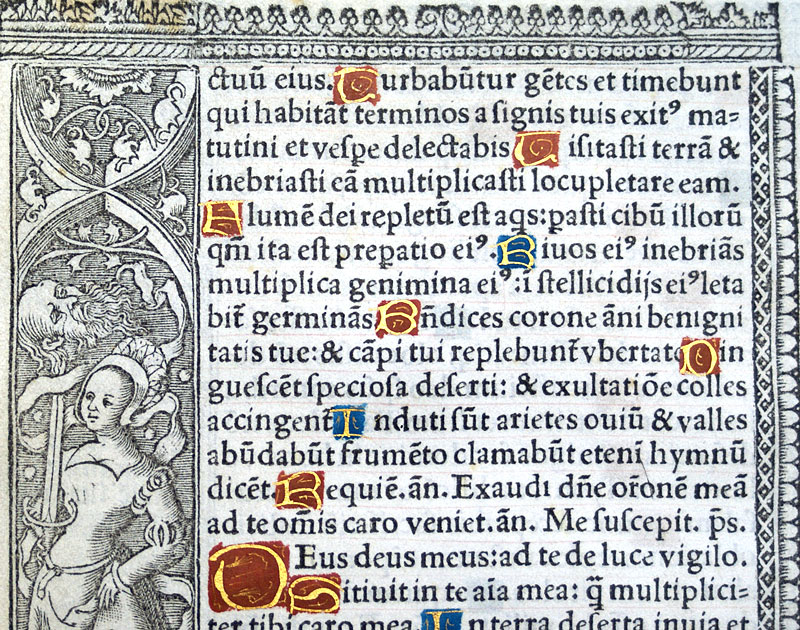 ctuū eius. Turbabūtur gētes et timebunt
qui habitāt terminos a ſignis tuis exitꝰ ma=
tutini et veſpe delectabis Uiſitaſti terrā &
inebriaſti eā multiplicaſti locupletare eam.
Flumē dei repletū eſt aqs: paſti cibū illorū
qm̄ ita eſt prepatio eiꝰ. Riuos eiꝰ inebriās
multiplica genimina eiꝰ: i ſtellicidijs eiꝰ leta
bit̄ germinās Bn̄dices corone āni benigni
tatis tue: & cāpi tui replebunt̄ vbertate Pin
gueſcēt ſpecioſa deſerti: & exultatiōe colles
accingent̄ Induti ſūt arietes ouiū & valles
abūdabūt frumēto clamabūt eteni hymnū
dicēt. Requiē. ān. Exaudi dn̄e or̄onē meā
ad te om̄is caro veniet. ān. Me ſuſcepit. p̄s.
Deus deus meus: ad te de luce vigilo.
Sitiuit in te aīa mea: q̄ multiplici=
ter tibi caro mea In terra deſerta inuia et